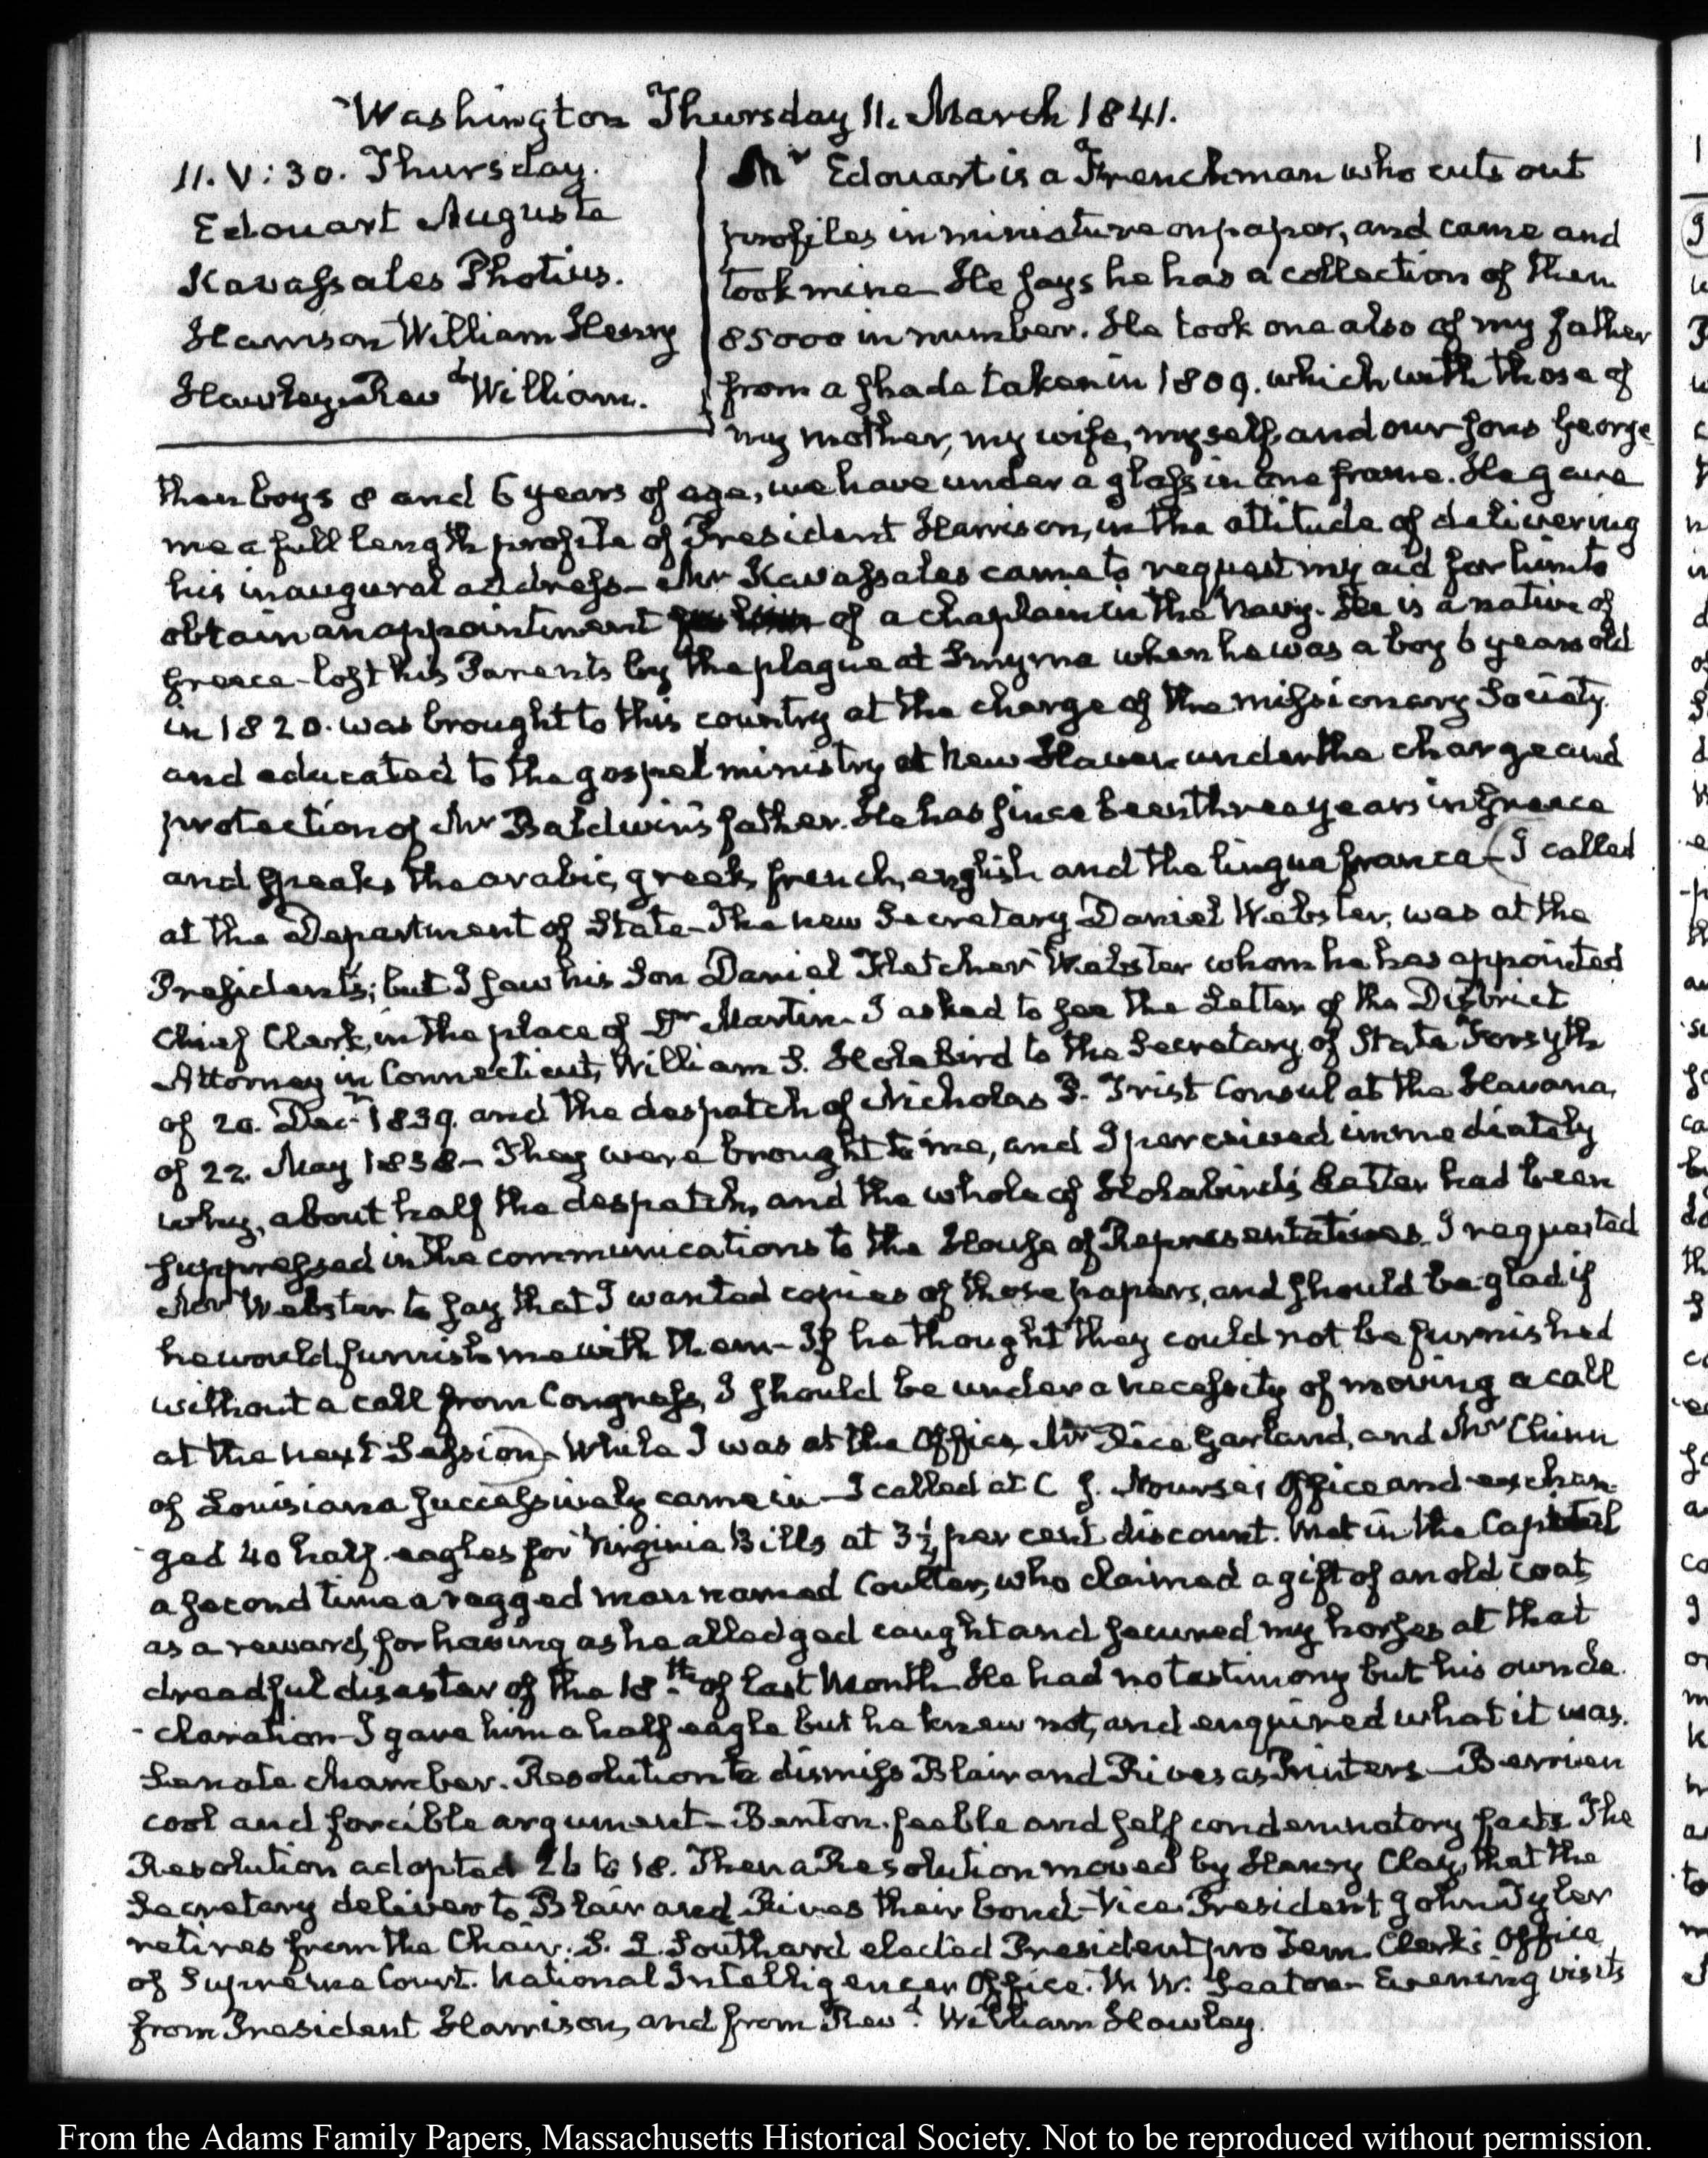 Washington Thursday 11. March 1841.
11. V:30. Thursday.
Edouart Auguste
Kavassales Photius.
Harrison William Henry
Hawley Revd William.
Mr Edouart is a Frenchman who cuts out
profiles in miniature on paper, and came and
took mine— He says he has a collection of them
85000 in number. He took one also of my father
from a shade taken in 1809. which with those of
my mother, my wife, myself, and our sons George
then boys 8 and 6 years of age, we have under a glass in one frame. He gave
me a full length profile of President Harrison, in the attitude of delivering
his inaugural address— Mr Kavassales came to request my aid for him to
obtain an appointment of a chaplain in the Navy. He is a native of
Greece— lost his Parents by the plague at Smyrna when he was a boy 6 years old
in 1820. was brought to this country at the charge of the missionary Society
and educated to the gospel ministry at New Haven under the charge and
protection of Mr Baldwin's father. He has since been three years in Greece
and speaks the arabic, greek, french, english and the lingua franca— I called
at the Department of State— The new Secretary Daniel Webster, was at the
President's; but I saw his Son Daniel Fletcher Webster whom he has appointed
Chief Clerk, in the place of Dr Martin— I asked to see the Letter of the District
Attorney in Connecticut, William S. Holabird to the Secretary of State Forsyth
of 20. Decr 1839. and the despatch of Nicholas P. Trist Consul at the Havana,
of 22. May 1838— They were brought to me, and I perceived immediately
why, about half the despatch, and the whole of Holabird's Letter had been
suppressed in the communications to the House of Representatives. I requested
Mr Webster to say that I wanted copies of those papers, and should be glad if
he would furnish me with them— If he thought they could not be furnished
without a call from Congress, I should be under a necessity of moving a call
at the next Session— While I was at the Office, Mr Rice Garland, and Mr Chinn
of Louisiana successively came in— I called at C J. Nourse's Office and exchan-
ged 40 half-eagles for Virginia Bills at 3½ per cent discount. Met in the Capitol
a second time a ragged man named Coulter, who claimed a gift of an old coat,
as a reward, for having as he alledged caught and secured my horses at that
dreadful disaster of the 18th of last Month— He had no testimony but his own de-
claration— I gave him a half-eagle but he knew not, and enquired what it was.
Senate chamber. Resolution to dismiss Blair and Rives as Printers— Berrien
cool and forcible argument— Benton. feeble and self condemnatory facts. The
Resolution adopted 26 to 18. Then a Resolution moved by Henry Clay, that the
Secretary deliver to Blair and Rives their bond— Vice-President John Tyler
retires from the Chair. S. L. Southard elected President pro Tem. Clerk's Office
of Supreme Court. National Intelligencer Office. W. W. Seaton— Evening visits
from President Harrison, and from Revd. William Hawley.
From the Adams Family Papers, Massachusetts Historical Society. Not to be reproduced without permission.